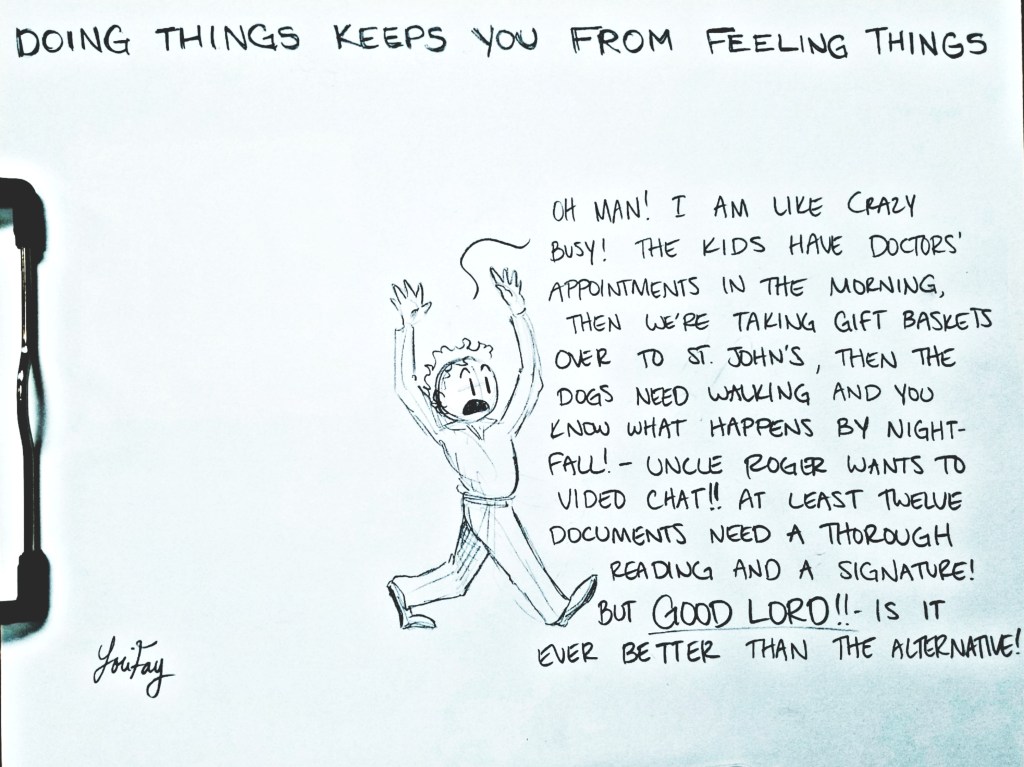 DOING THINGS KEEPS YOU FROM FEELING THINGS
OH MAN! I AM LIKE CRAZY
BUSY! THE KIDS HAVE DOCTORS'
APPOINTMENTS IN THE MORNING,
THEN WE'RE TAKING GIFT BASKETS
OVER TO ST. JOHN'S, THEN THE
DOGS NEED WALKING AND YOU
KNOW WHAT HAPPENS BY NIGHT-
FALL! - UNCLE ROGER WANTS TO
VIDEO CHAT!! AT LEAST TWELVE
DOCUMENTS NEED A THOROUGH
READING AND A SIGNATURE!
BUT GOOD LORD!! - IS IT
EVER BETTER THAN THE ALTERNATIVE!